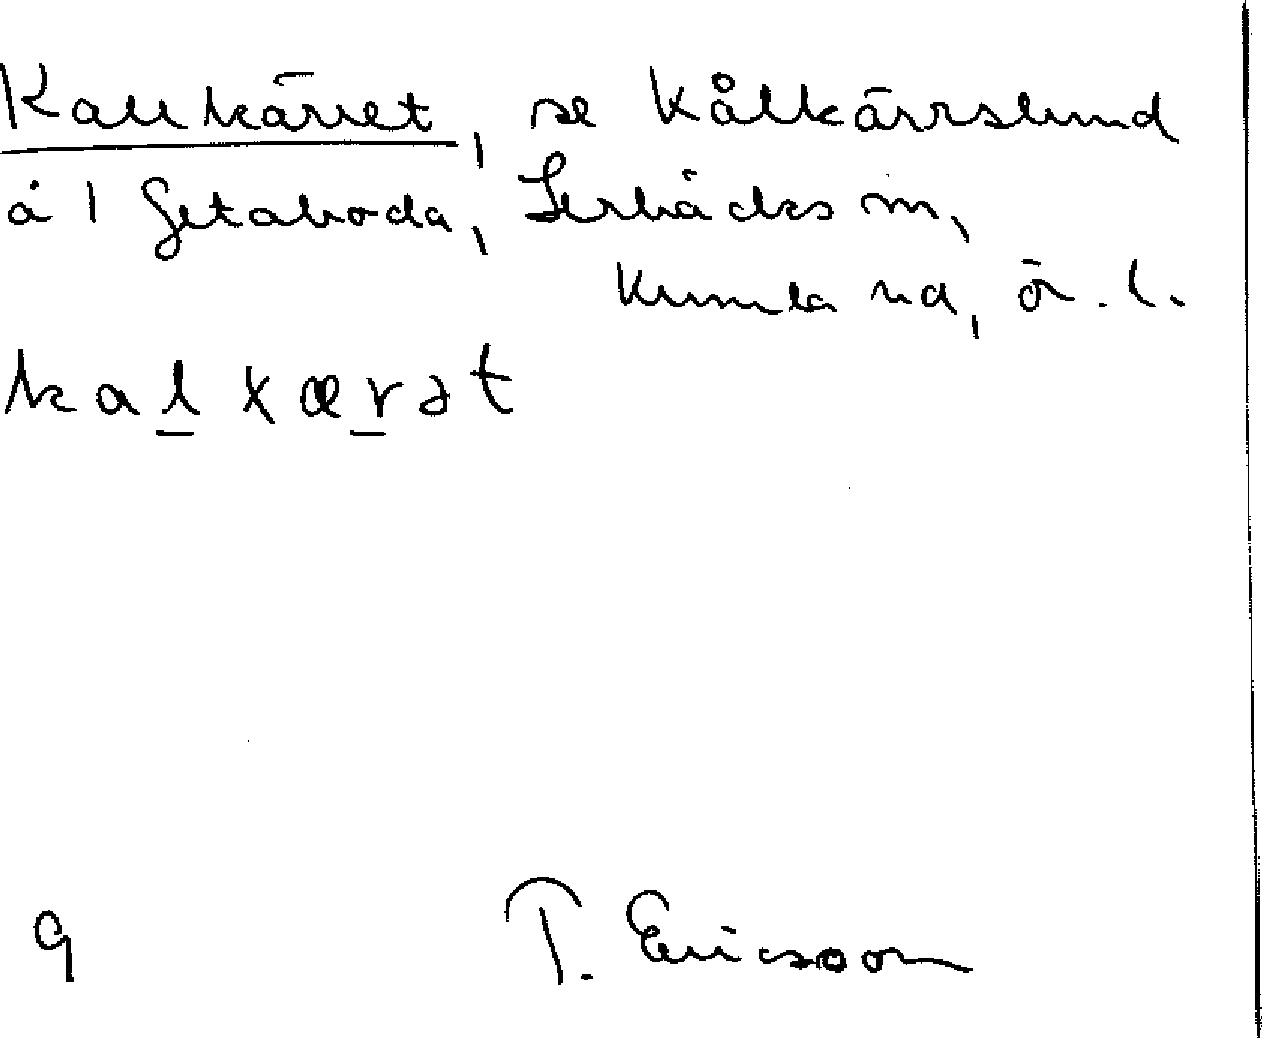 Kallkärret, se Kålkärrslund
å 1 Getaboda, Lerbäcks sn,
Kumla hd, ör. l.
kalxærət
9 T. Ericsson